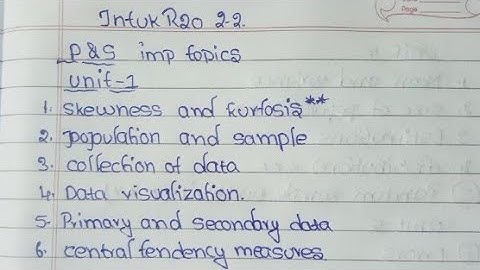 Jntuk R20 2-2.
P&S imp topics
unit-1
1. Skewness and kurtosis**
2. population and sample
3. collection of data
4. Data visualization.
5. Primary and secondary data
6. central tendency measures.
Page